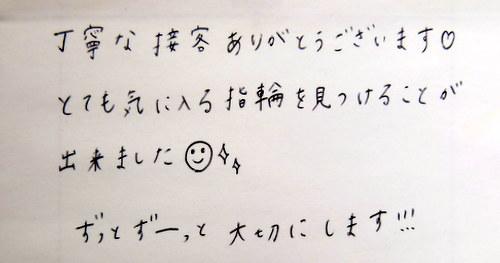 丁寧な接客ありがとうございます♡
とても気に入る指輪を見つけることが
出来ました☺✧✧
ずっとずーっと大切にします!!!